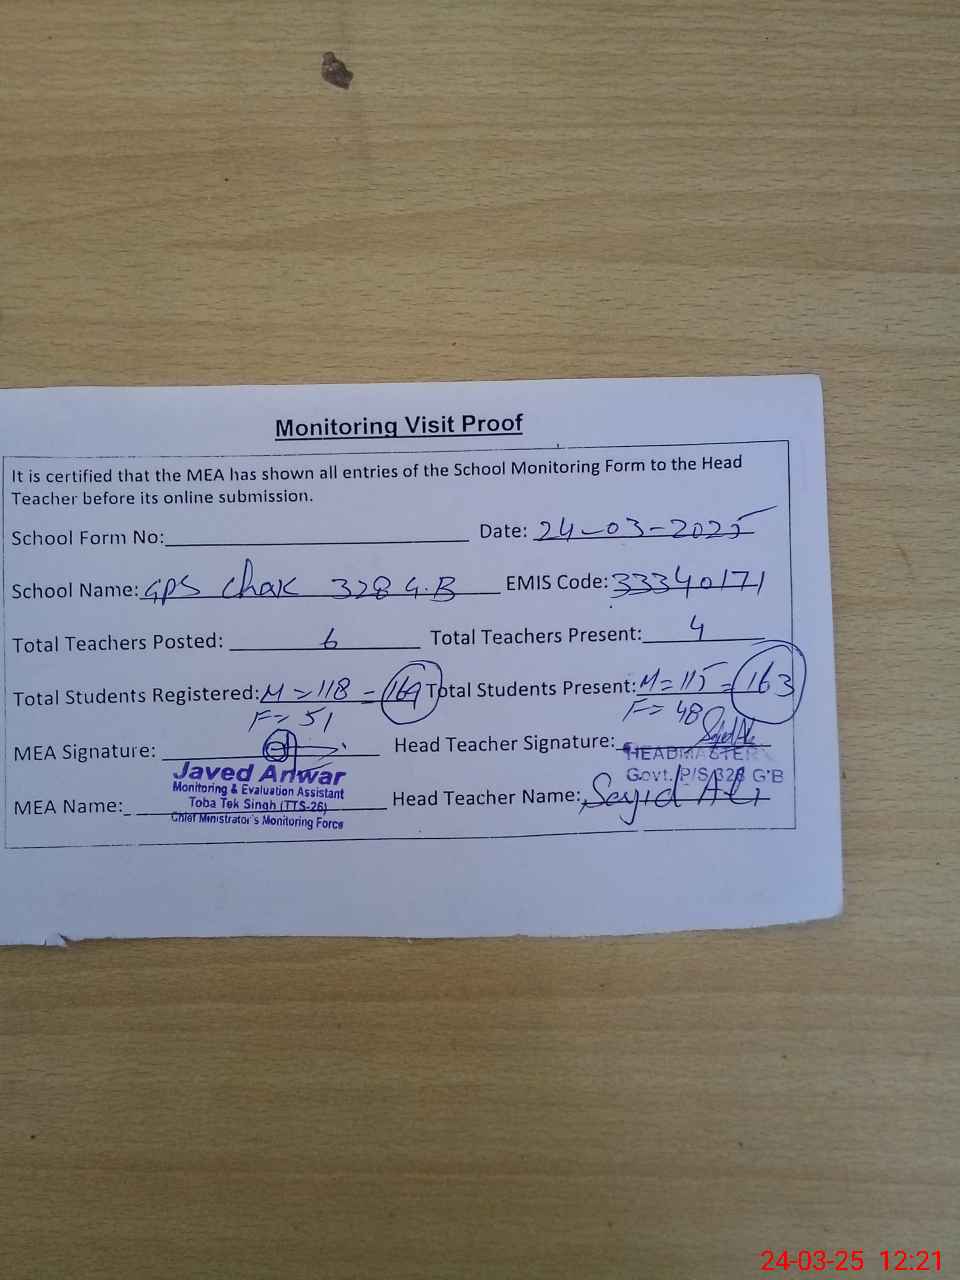 Monitoring Visit Proof
It is certified that the MEA has shown all entries of the School Monitoring Form to the Head
Teacher before its online submission.
School Form No: Date: 24-03-2025
School Name: GPS Chak 328 G.B EMIS Code: 33340171
Total Teachers Posted: 6 Total Teachers Present: 4
Total Students Registered: M = 118 - 169 Total Students Present: M = 115 = 163
F = 51 F = 48
MEA Signature: Head Teacher Signature:
HEADMASTER
Javed Anwar Govt. P/S 328 G'B
Monitoring & Evaluation Assistant
MEA Name: Toba Tek Singh (TTS-26) Head Teacher Name: Sajid Ali
Chief Ministrator's Monitoring Force
24-03-25 12:21